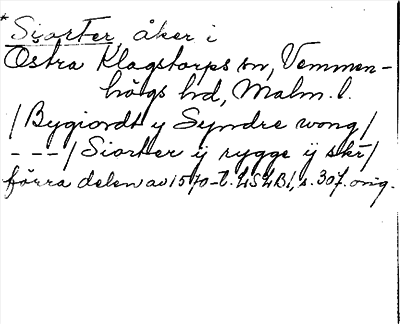 *Siorter, åker i
Östra Klagstorps sn, Vemmen-
högs hd, Malm. l.
/Bygiordt y Syndre wong/
- - -/Siorter ij rygge ij skr/
förra delen av 1570-t. LSLB1, s. 307. orig.